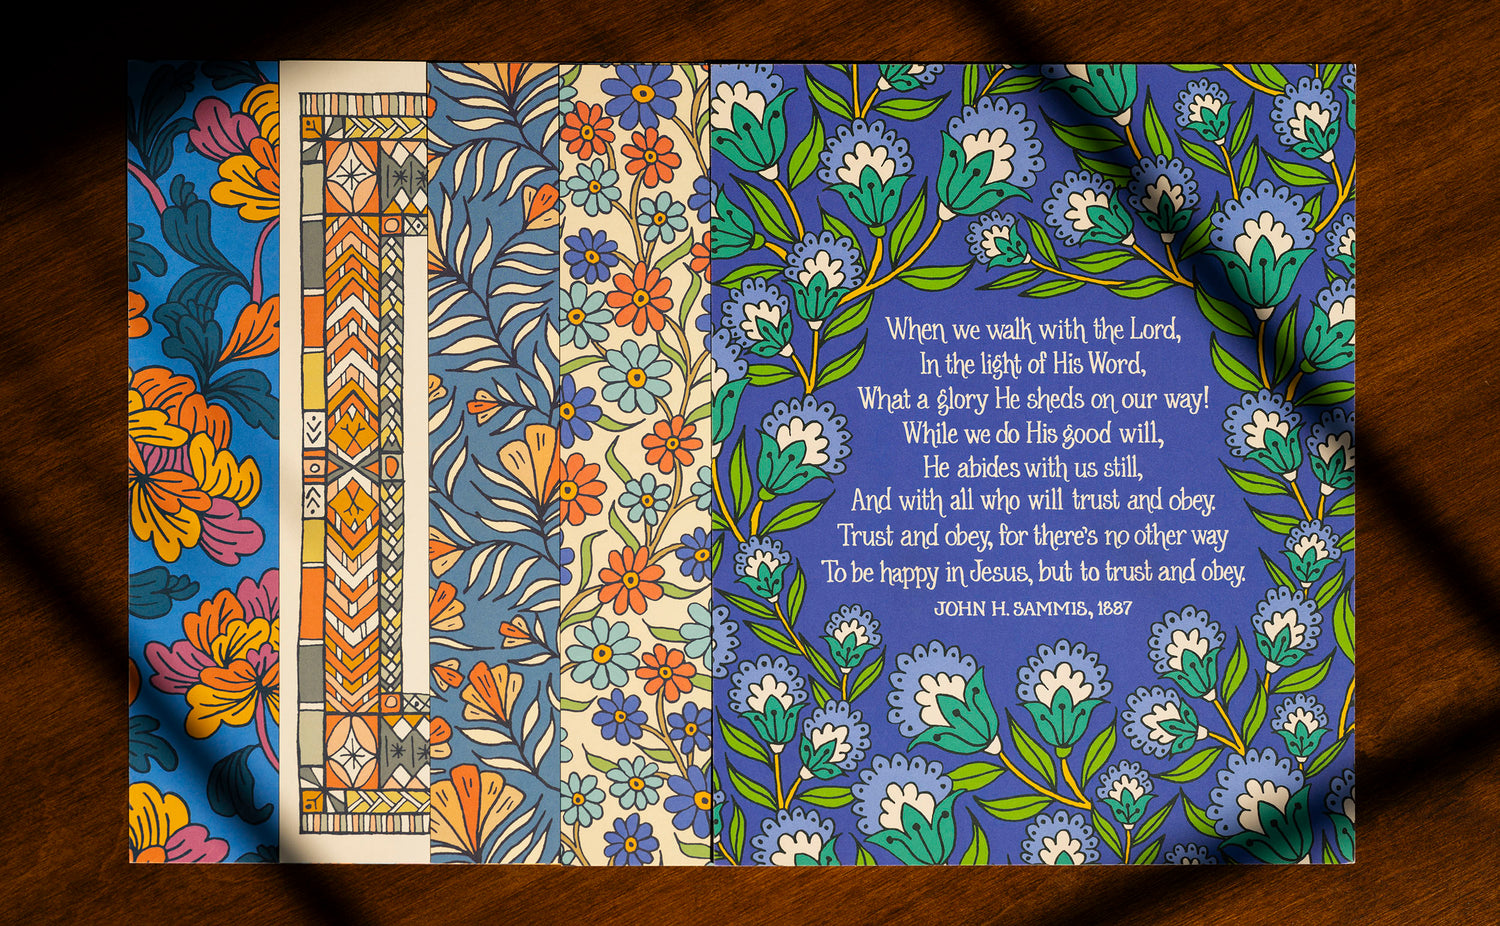 When we walk with the Lord,
In the light of His Word,
What a glory He sheds on our way!
While we do His good will,
He abides with us still,
And with all who will trust and obey.
Trust and obey, for there's no other way
To be happy in Jesus, but to trust and obey.
JOHN H. SAMMIS, 1887